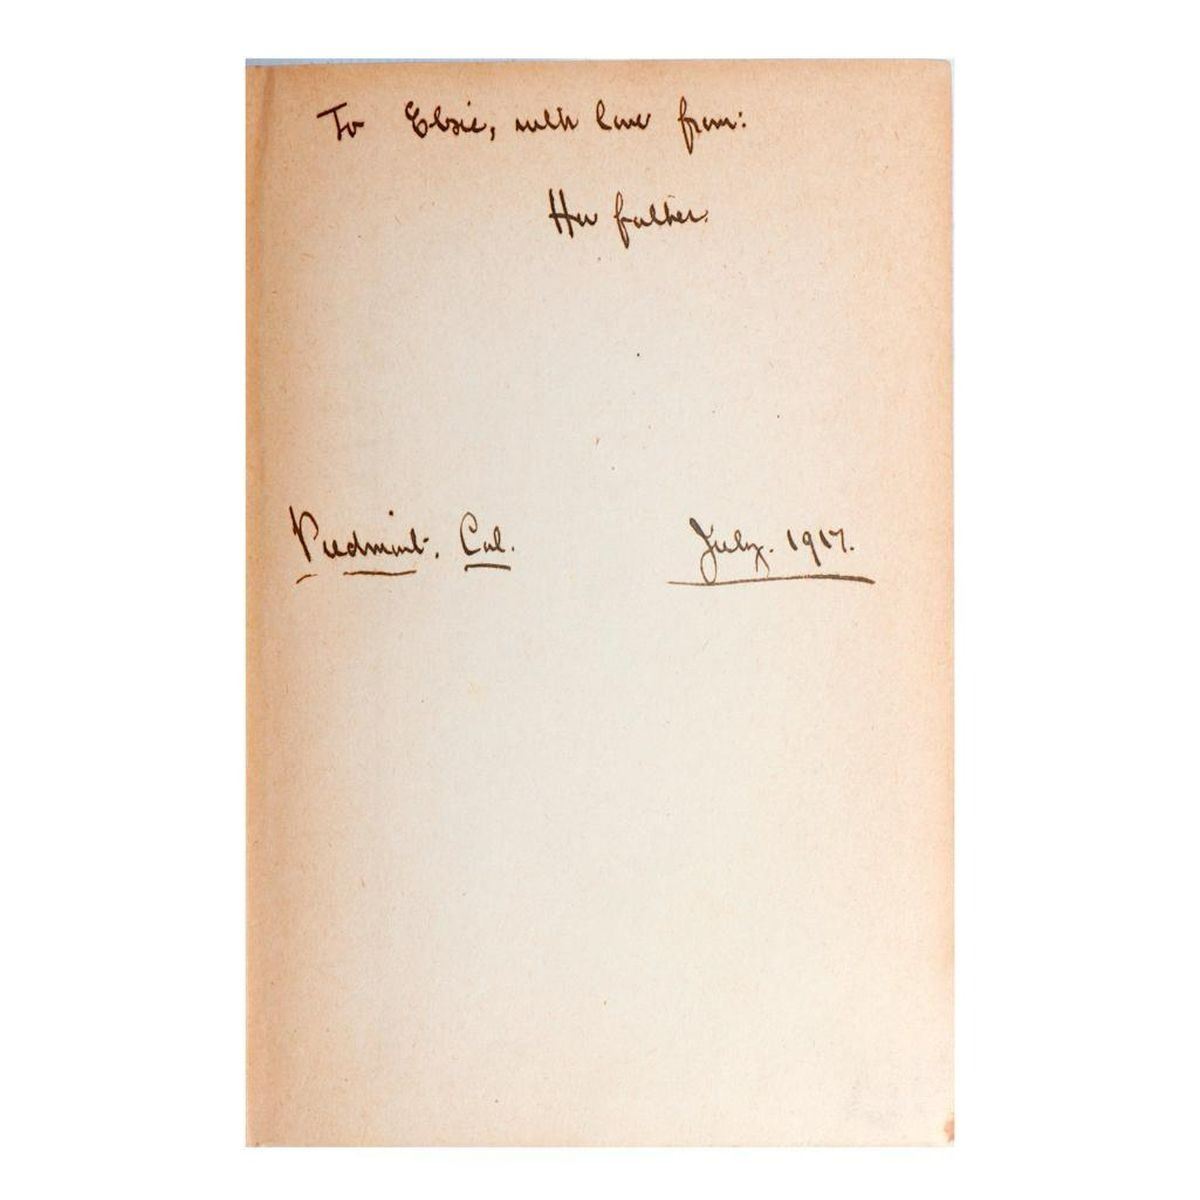 To Elsie, with love from:
Her father.
Piedmont, Cal. July. 1917.